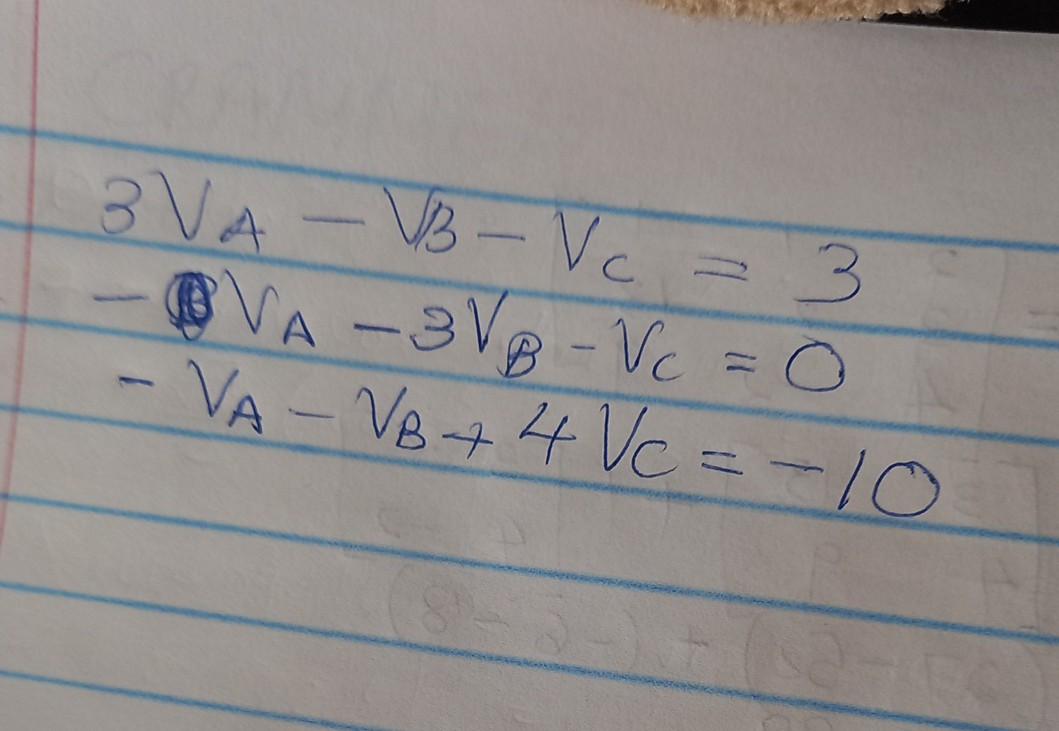 3VA - VB - VC = 3
- VA - 3VB - VC = 0
- VA - VB + 4VC = -10